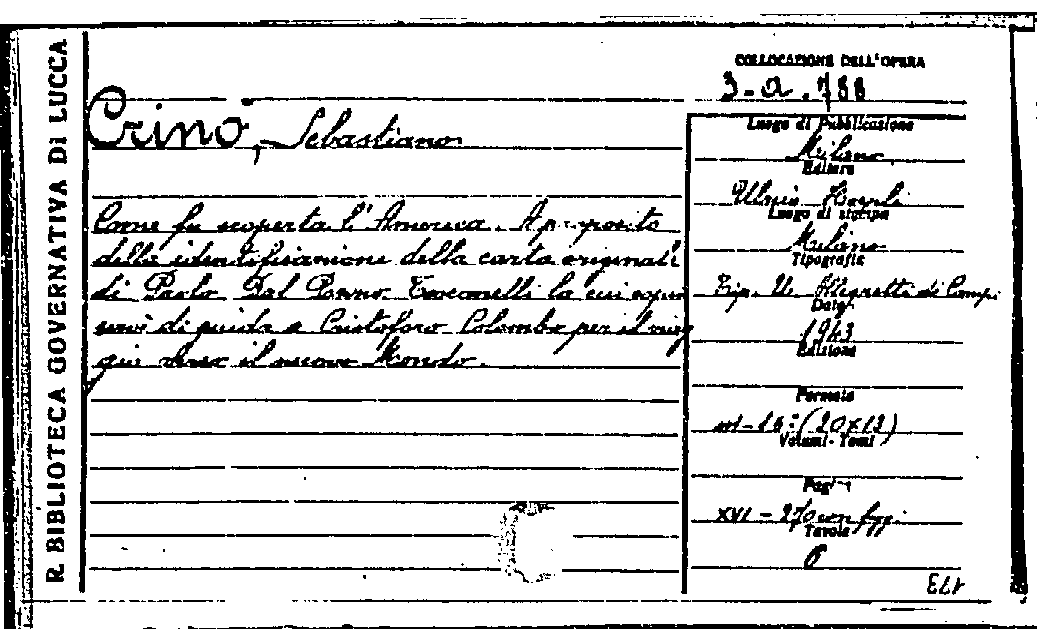 R. BIBLIOTECA GOVERNATIVA DI LUCCA
COLLOCAZIONE DELL'OPERA
3-a.788
Crinò, Sebastiano
Come fu scoperta l'America. A proposito
della identificazione della carta originale
di Paolo Dal Pozzo Toscanelli la cui copia
servì di guida a Cristoforo Colombo per il viag
gio verso il nuovo Mondo.
Luogo di Pubblicazione
Milano
Editore
Ulrico Hoepli
Luogo di stampa
Milano
Tipografia
Tip. U. Allegretti di Campi
Data
1943
Edizione
Formato
in-16: (20x13)
Volumi - Tomi
Pagine
XVI - 270 con figg.
Tavole
6
173